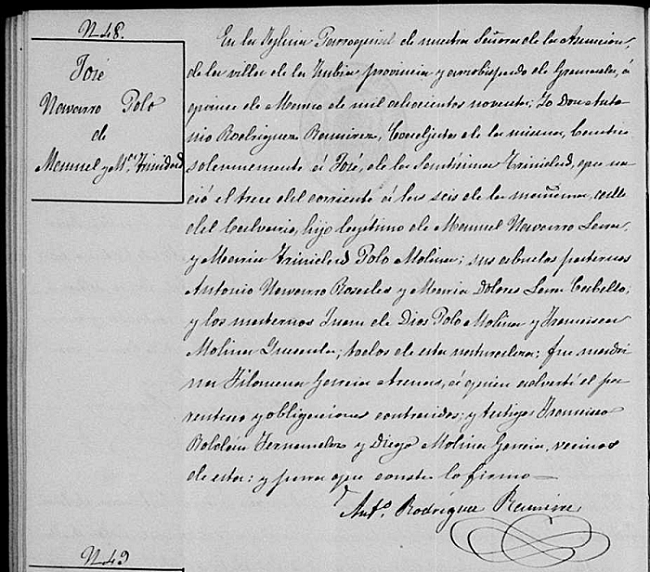 N 48.
José
Navarro Polo
de
Manuel y Mª Trinidad
En la Yglesia Parroquial de nuestra Señora de la Asuncion,
de la villa de la provincia y arzobispado de Granada, á
quince de Marzo de mil ochocientos noventa; Yo Don Anto
nio Rodriguez Ramirez, Coadjutor de la misma, bautice
solemnemente á José, de la Santisima Trinidad, que na
ció el trece del corriente á las seis de la mañana, calle
del Calvario, hijo legítimo de Manuel Navarro Lara
y Maria Trinidad Polo Molina; sus abuelos paternos
Antonio Navarro Rosales y Maria Dolores Lara
y los maternos Juan de Dios Polo Molina y Francisca
Molina Quesada; todos de esta naturaleza: fue madri
na Filomena Garcia Arenas, á quien advertí el pa
rentesco y obligaciones contraidas; y testigos Francisco
Roldán Fernandez y Diego Molina Garcia, vecinos
de esta: y para que conste lo firmo
Antº. Rodriguez Ramirez
N 49